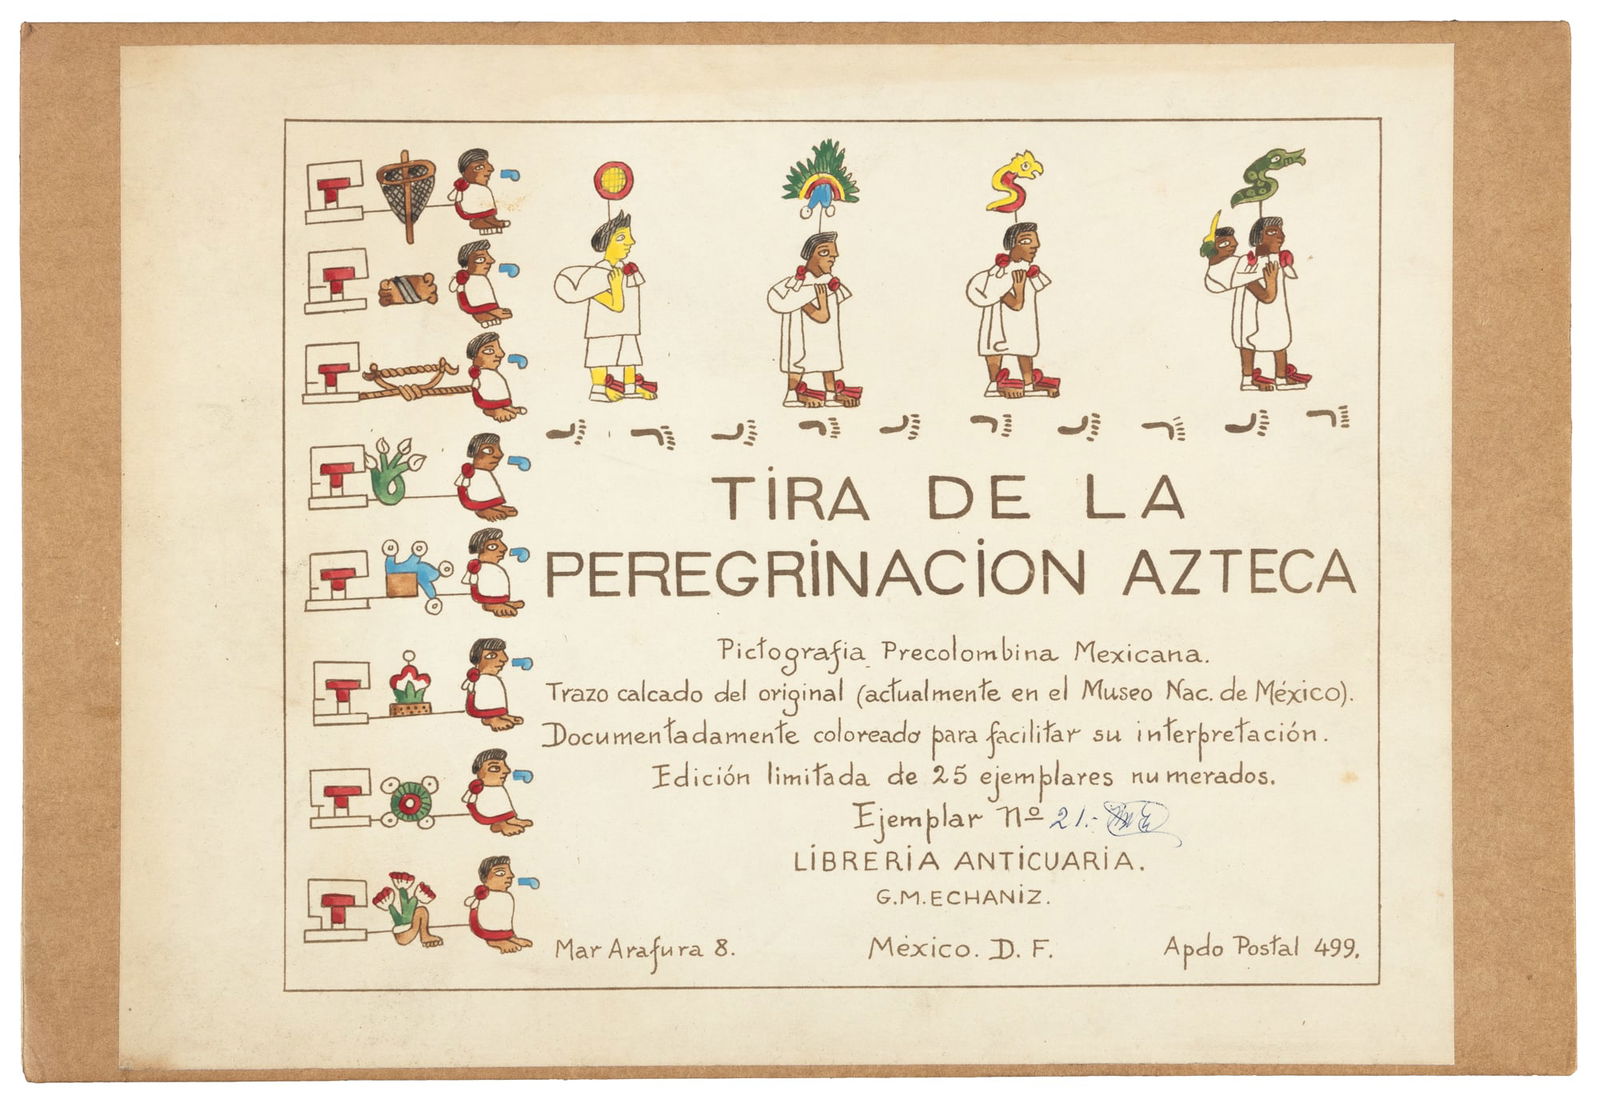 TIRA DE LA
PEREGRINACION AZTECA
Pictografia Precolombina Mexicana.
Trazo calcado del original (actualmente en el Museo Nac. de México).
Documentadamente coloreado para facilitar su interpretación.
Edición limitada de 25 ejemplares numerados.
Ejemplar Nº 21.-
LIBRERIA ANTICUARIA.
G.M.ECHANIZ.
Mar Arafura 8. México. D. F. Apdo Postal 499.